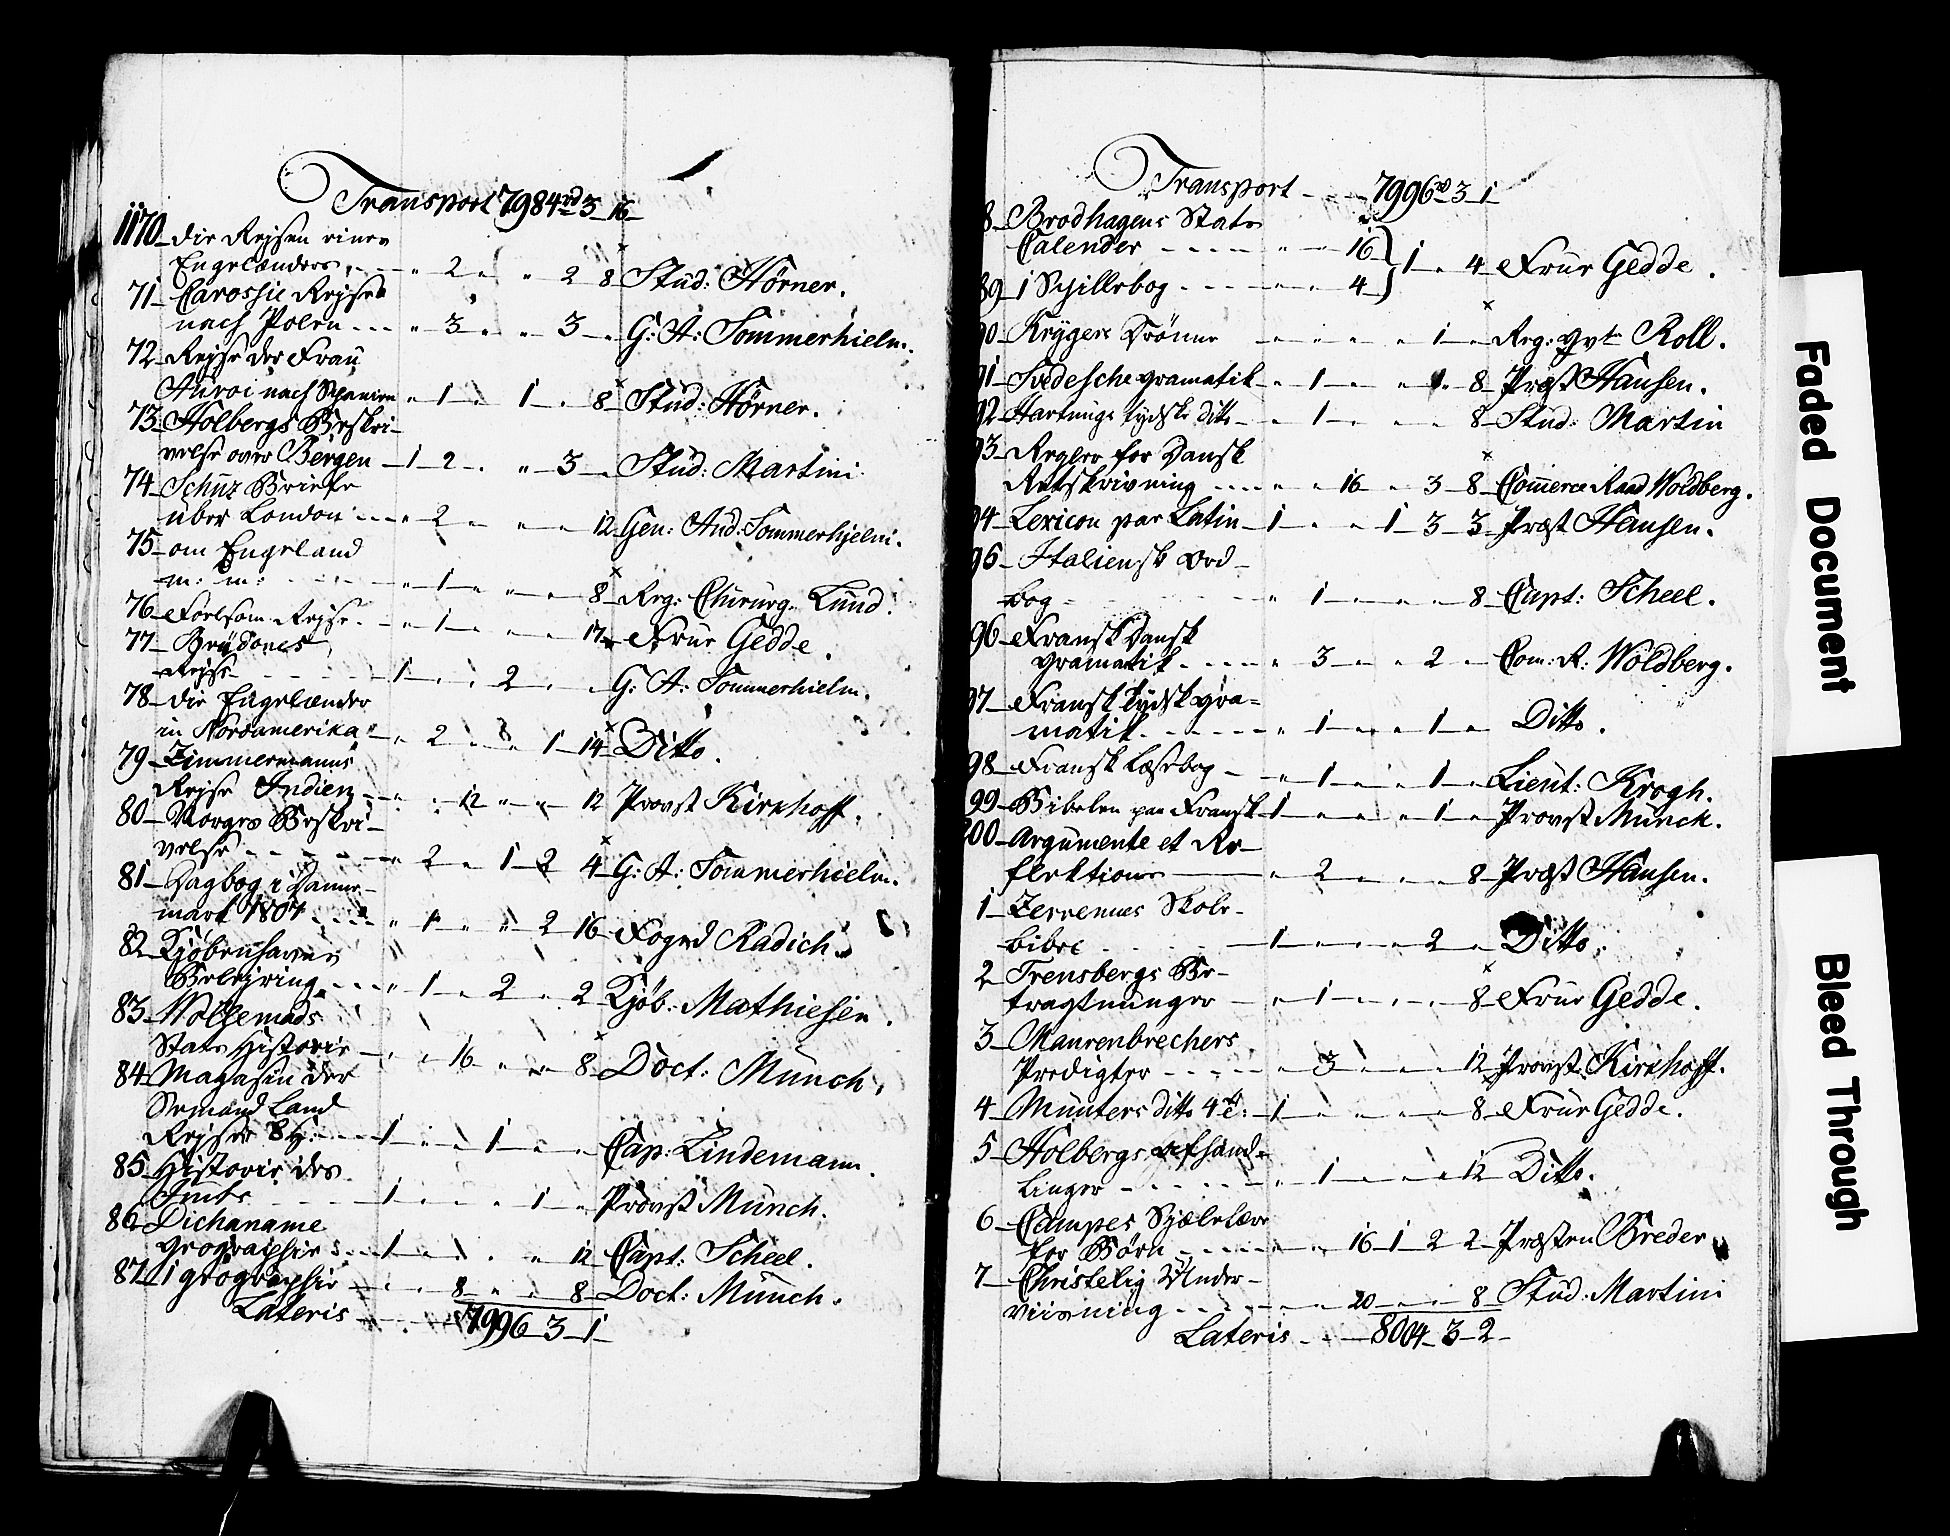 Transport 7984 rd 3 16
1170 die Rejsen eines
Engelænders, 2 " 2 8 Stud: Hörner.
71 Carossis Rejse
nach Polen 3 " 3 G: A: Sommerhielm.
72 Rejse der Frau
Aunoi nach Spanien 1 1 8 Stud: Hörner.
73 Holbergs Beskri-
velse over Bergen 1 2 " 3 Stud: Martini
74 Schüz Briefe
über London 2 12 Gen: Aud: Sommerhjelm.
75 om Engeland
m: m: 1 8 Reg: Chirurg. Lund.
76 Rejse 1 17 Frue Gedde.
77 Brydones
Rejse 1 2 G: A: Sommerhielm.
78 die Engelænder
in Nordamerika 2 1 14 Ditto.
79 Zimmermanns
Rejse Indien 12 12 Provst Kirkhoff.
80 Norges Beskri-
velse 2 1 2 4 G: A: Sommerhielm.
81 Dagbog i Danne-
mark 1801 1 2 16 Foged Radich.
82 Kjøbenhavns
Belejring 1 2 2 Kjøb: Mathiesen.
83
Stats Historie 16 8 Doct: Munch.
84 Magasin der
Land
Rejser 8 H: 1 1 Cap: Lindemann.
85 Historie des
1 1 Provst Munch.
86 Dichaname
geographie 1 12 Capt: Scheel.
87 1 geographie 8 8 Doct: Munch.
Lateris 7996 3 1
Transport 7996 rd 3 1
8 Brodhagens Stats
Calender 16 } 1 4 Frue Gedde.
89 1 Spillebog 4 }
90 Krygers Drømme 1 Reg: Qvt Roll.
91 Svedesche gramatik 1 1 8 Præst Hansen.
92 Hartungs tydske ditto 1 8 Stud: Martin
93 Regler for Dansk
Retskrivning 16 3 8 Commerce Raad Woldberg.
94 Lexicon par Latin 1 1 3 3 Præst Hansen.
95 Italiensk Ord-
bog 1 8 Capt: Scheel.
96 Fransk Dansk
gramatik 3 2 Com: R: Woldberg.
97 Fransk tydsk gra=
matik 1 1 Ditto.
98 Fransk Læsebog 1 1 Lieut: Krogh.
99 Bibelen paa Fransk 1 1 Provst Munck.
200 Argumente et Re-
flektions 2 8 Præst Hansen.
1 Zerrenners Skole-
bibel 1 2 Ditto.
2 Trensbergs Be-
tragtnunger 1 8 Frue Gedde.
3 Maurenbrechers
Predigter 3 12 Provst Kirkhoff.
4 Munters ditto 4 1 8 Frue Gedde.
5 Holbergs afhand-
linger 1 12 Ditto.
6 Campes Sjælelære
for Børn 16 1 2 2 Præsten Breder
7 Christelig Under-
viisning 20 8 Stud: Martini
Lateris 8004 3 2
Faded Document
Bleed Through